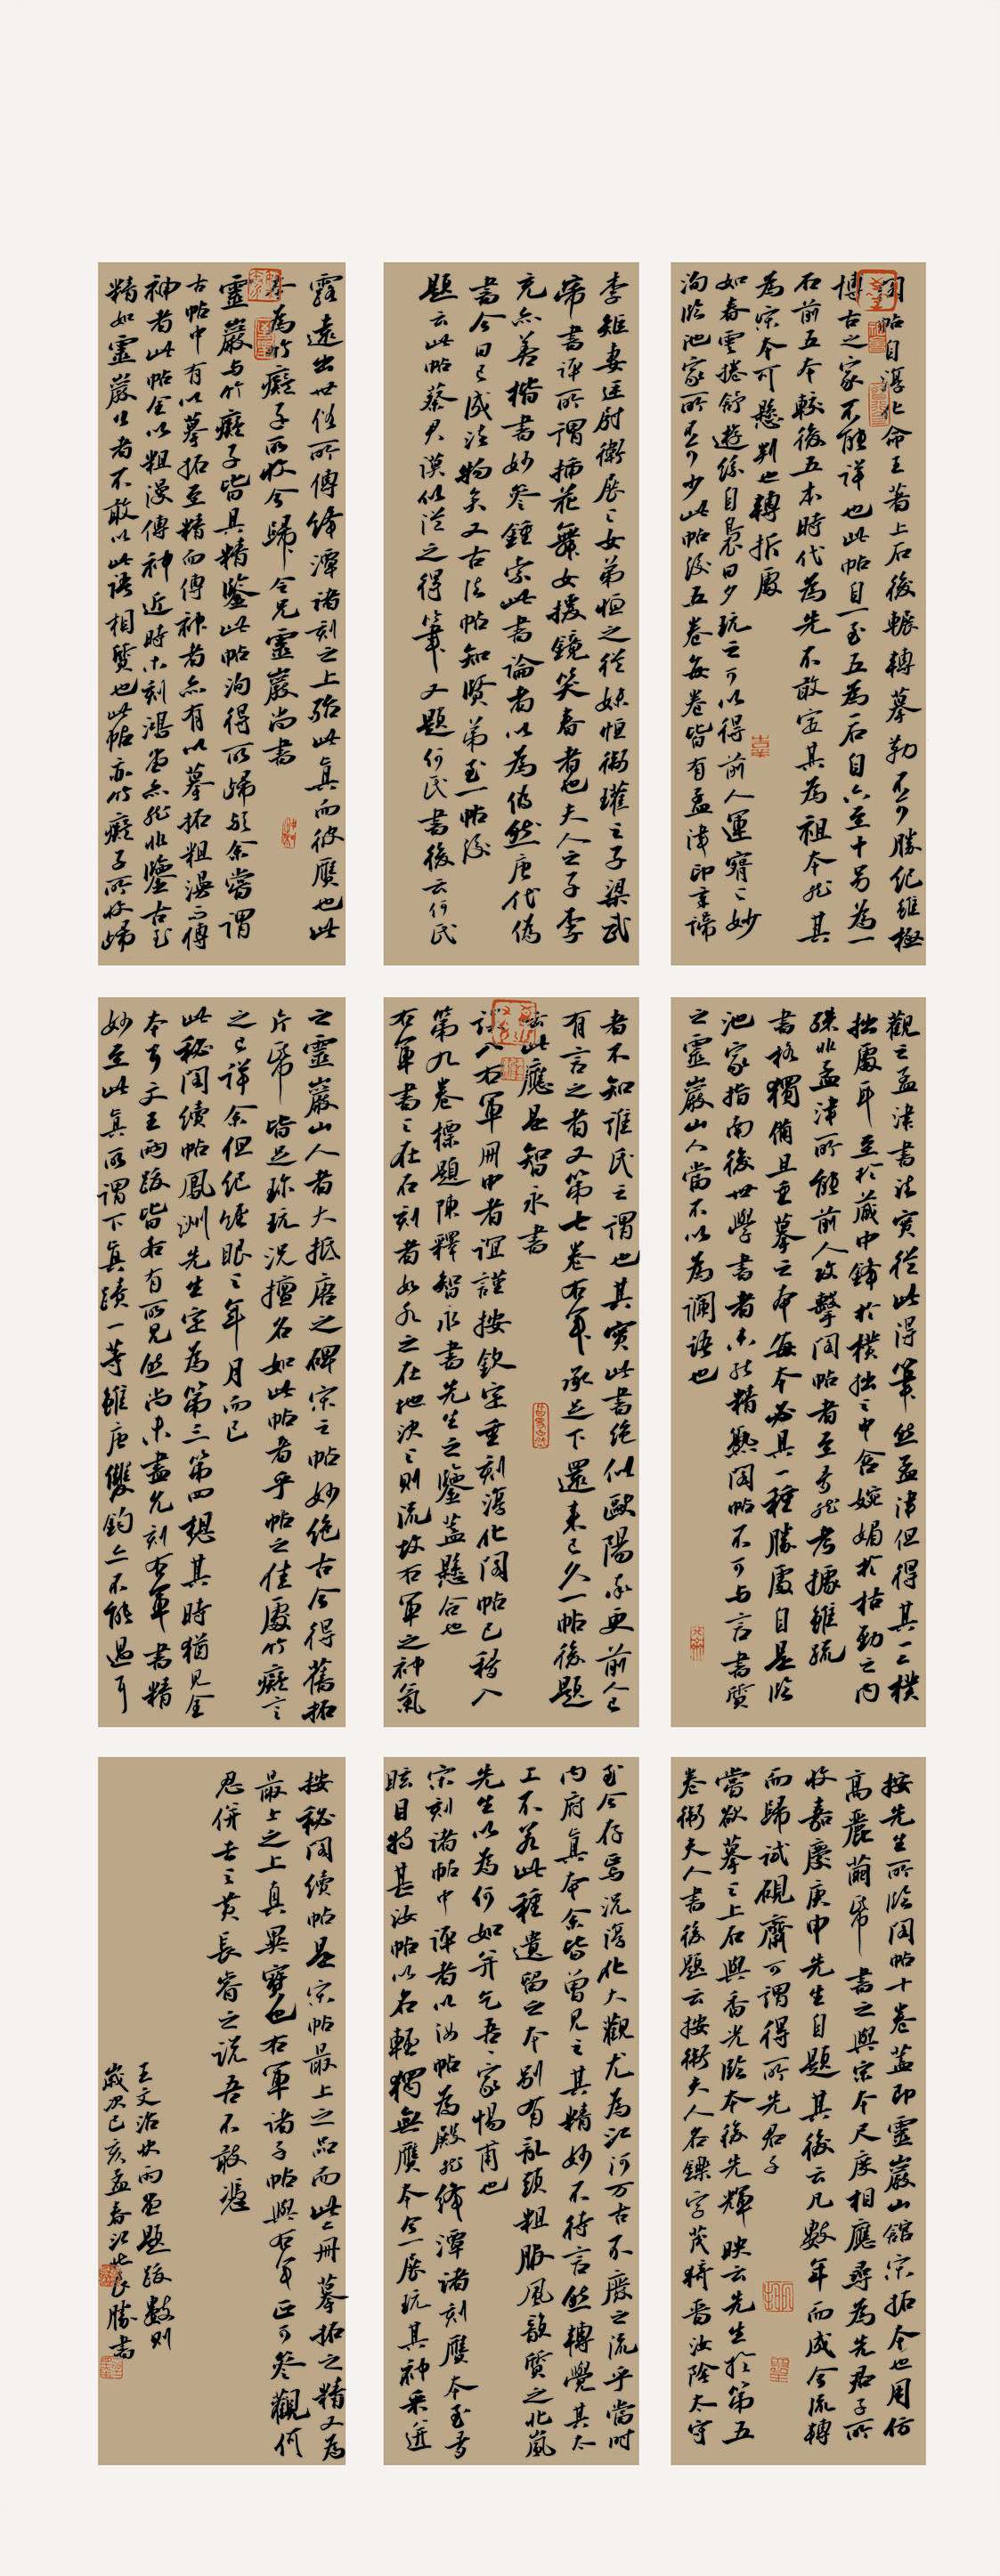 閣帖自淳化命王著上石後輾轉摹勒不可勝紀雖極
博古之家不能詳也此帖自一至五為一石自六至十另為一
石前五本較後五本時代為先不敢定其為祖本然其
為宋本可懸判也轉折處
如春雲捲舒遊絲自裊日夕玩之可以得前人運腕之妙
洵臨池家所不可少此帖後五卷每卷皆有孟津印章諦
觀之孟津書法實從此得筆然孟津但得其一二樸
拙處耳至於藏中鋒於樸拙之中含婉媚於枯勁之內
殊非孟津所能前人攻擊閣帖者至多然考據雖疏
書格獨備且重摹之本每本必具一種勝處自是臨
池家指南後世學書者未能精熟閣帖不可與言書質
之靈巖山人當不以為讕語也
按先生所臨閣帖十卷蓋即靈巖山館宋拓本也用仿
高麗繭紙書之與宋本尺度相應尋為先君子所
收嘉慶庚申先生自題其後云凡數年而成今流轉
而歸試硯齋可謂得所先君子
嘗欲摹之上石與香光臨本後先輝映云先生於第五
卷衛夫人書後題云按衛夫人名鑠字茂猗晉汝陰太守
李矩妻廷尉衛展之女弟恒之從妹恒衛瓘之子梁武
帝書評所謂插花舞女援鏡笑春者也夫人之子李
充亦善楷書妙參鍾索此書論者以為偽然唐代偽
書今日已成法物矣又古法帖知賢弟至一帖後
題云此帖蔡君謨似從之得筆又題何氏書後云何氏
者不知誰氏之謂也其實此書絕似歐陽率更前人已
有言之者又第七卷右軍承足下還來已久一帖後題
云此應是智永書
誤入右軍冊中者誼謹按欽定重刻淳化閣帖已移入
第九卷標題陳釋智永書先生之鑒蓋懸合也
右軍書之在石刻者如水之在地決之則流故右軍之神氣
至今存焉況淳化大觀尤為江河萬古不廢之流乎當時
內府真本余皆曾見之其精妙不待言然轉覺其太
工不若此種遺留之本別有亂頭粗服風韻質之北嵐
先生以為何如并乞吾家惕甫也
宋刻諸帖中評者以汝帖為殿然絳潭諸刻贋本至多
眩目特甚汝帖以名輕獨無贋本今一展玩其神采迸
露遠出世俗所傳絳潭諸刻之上殆此真而彼贋也此
本為竹癡子所收今歸令兄靈巖尚書
靈巖與竹癡子皆具精鑒此帖洵得所歸歟余嘗謂
古帖中有以摹拓至精而傳神者亦有以摹拓粗漫而傳
神者此帖全以粗漫傳神近時木刻鴻堂亦然非鑒古至
精如靈巖山人者不敢以此語相質也此帖亦竹癡子所收歸
之靈巖山人者大抵唐之碑宋之帖妙絕古今得舊拓
片紙皆足珍玩況擅名如此帖者乎帖之佳處竹癡言
之已詳余但紀經眼之年月而已
此秘閣續帖鳳洲先生定為第三第四想其時猶見全
本與文王兩跋皆各有所見然尚未盡允刻右軍書精
妙至此真所謂下真蹟一等雖唐雙鉤亦不能過耳
按秘閣續帖是宋帖最上之品而此二冊摹拓之精又為
最上之上真異寶也右軍諸子帖與右軍正可參觀何
忍併去之黃長睿之說吾不敢憑
王文治快雨堂題跋數則
歲次己亥孟春江長勝書